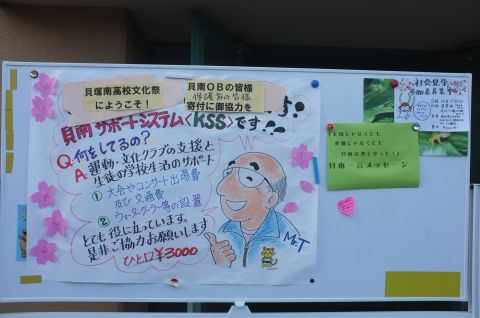 貝塚南高校文化祭
にようこそ!
貝南OBの皆様
保護者の皆様
寄付に御協力を
す!
貝南サポートシステム〈KSS〉です!!
Q.何をしてるの?
A.運動・文化クラブの支援と
生徒の学校生活のサポート
① 大会やコンクート出場費
及び交通費
② ウォータークーラー等の設置
とても役に立っています。
是非ご協力お願いします
ひと口¥3000
Mr.T
社会見学
参加者募集中
貝南一言メッセージ